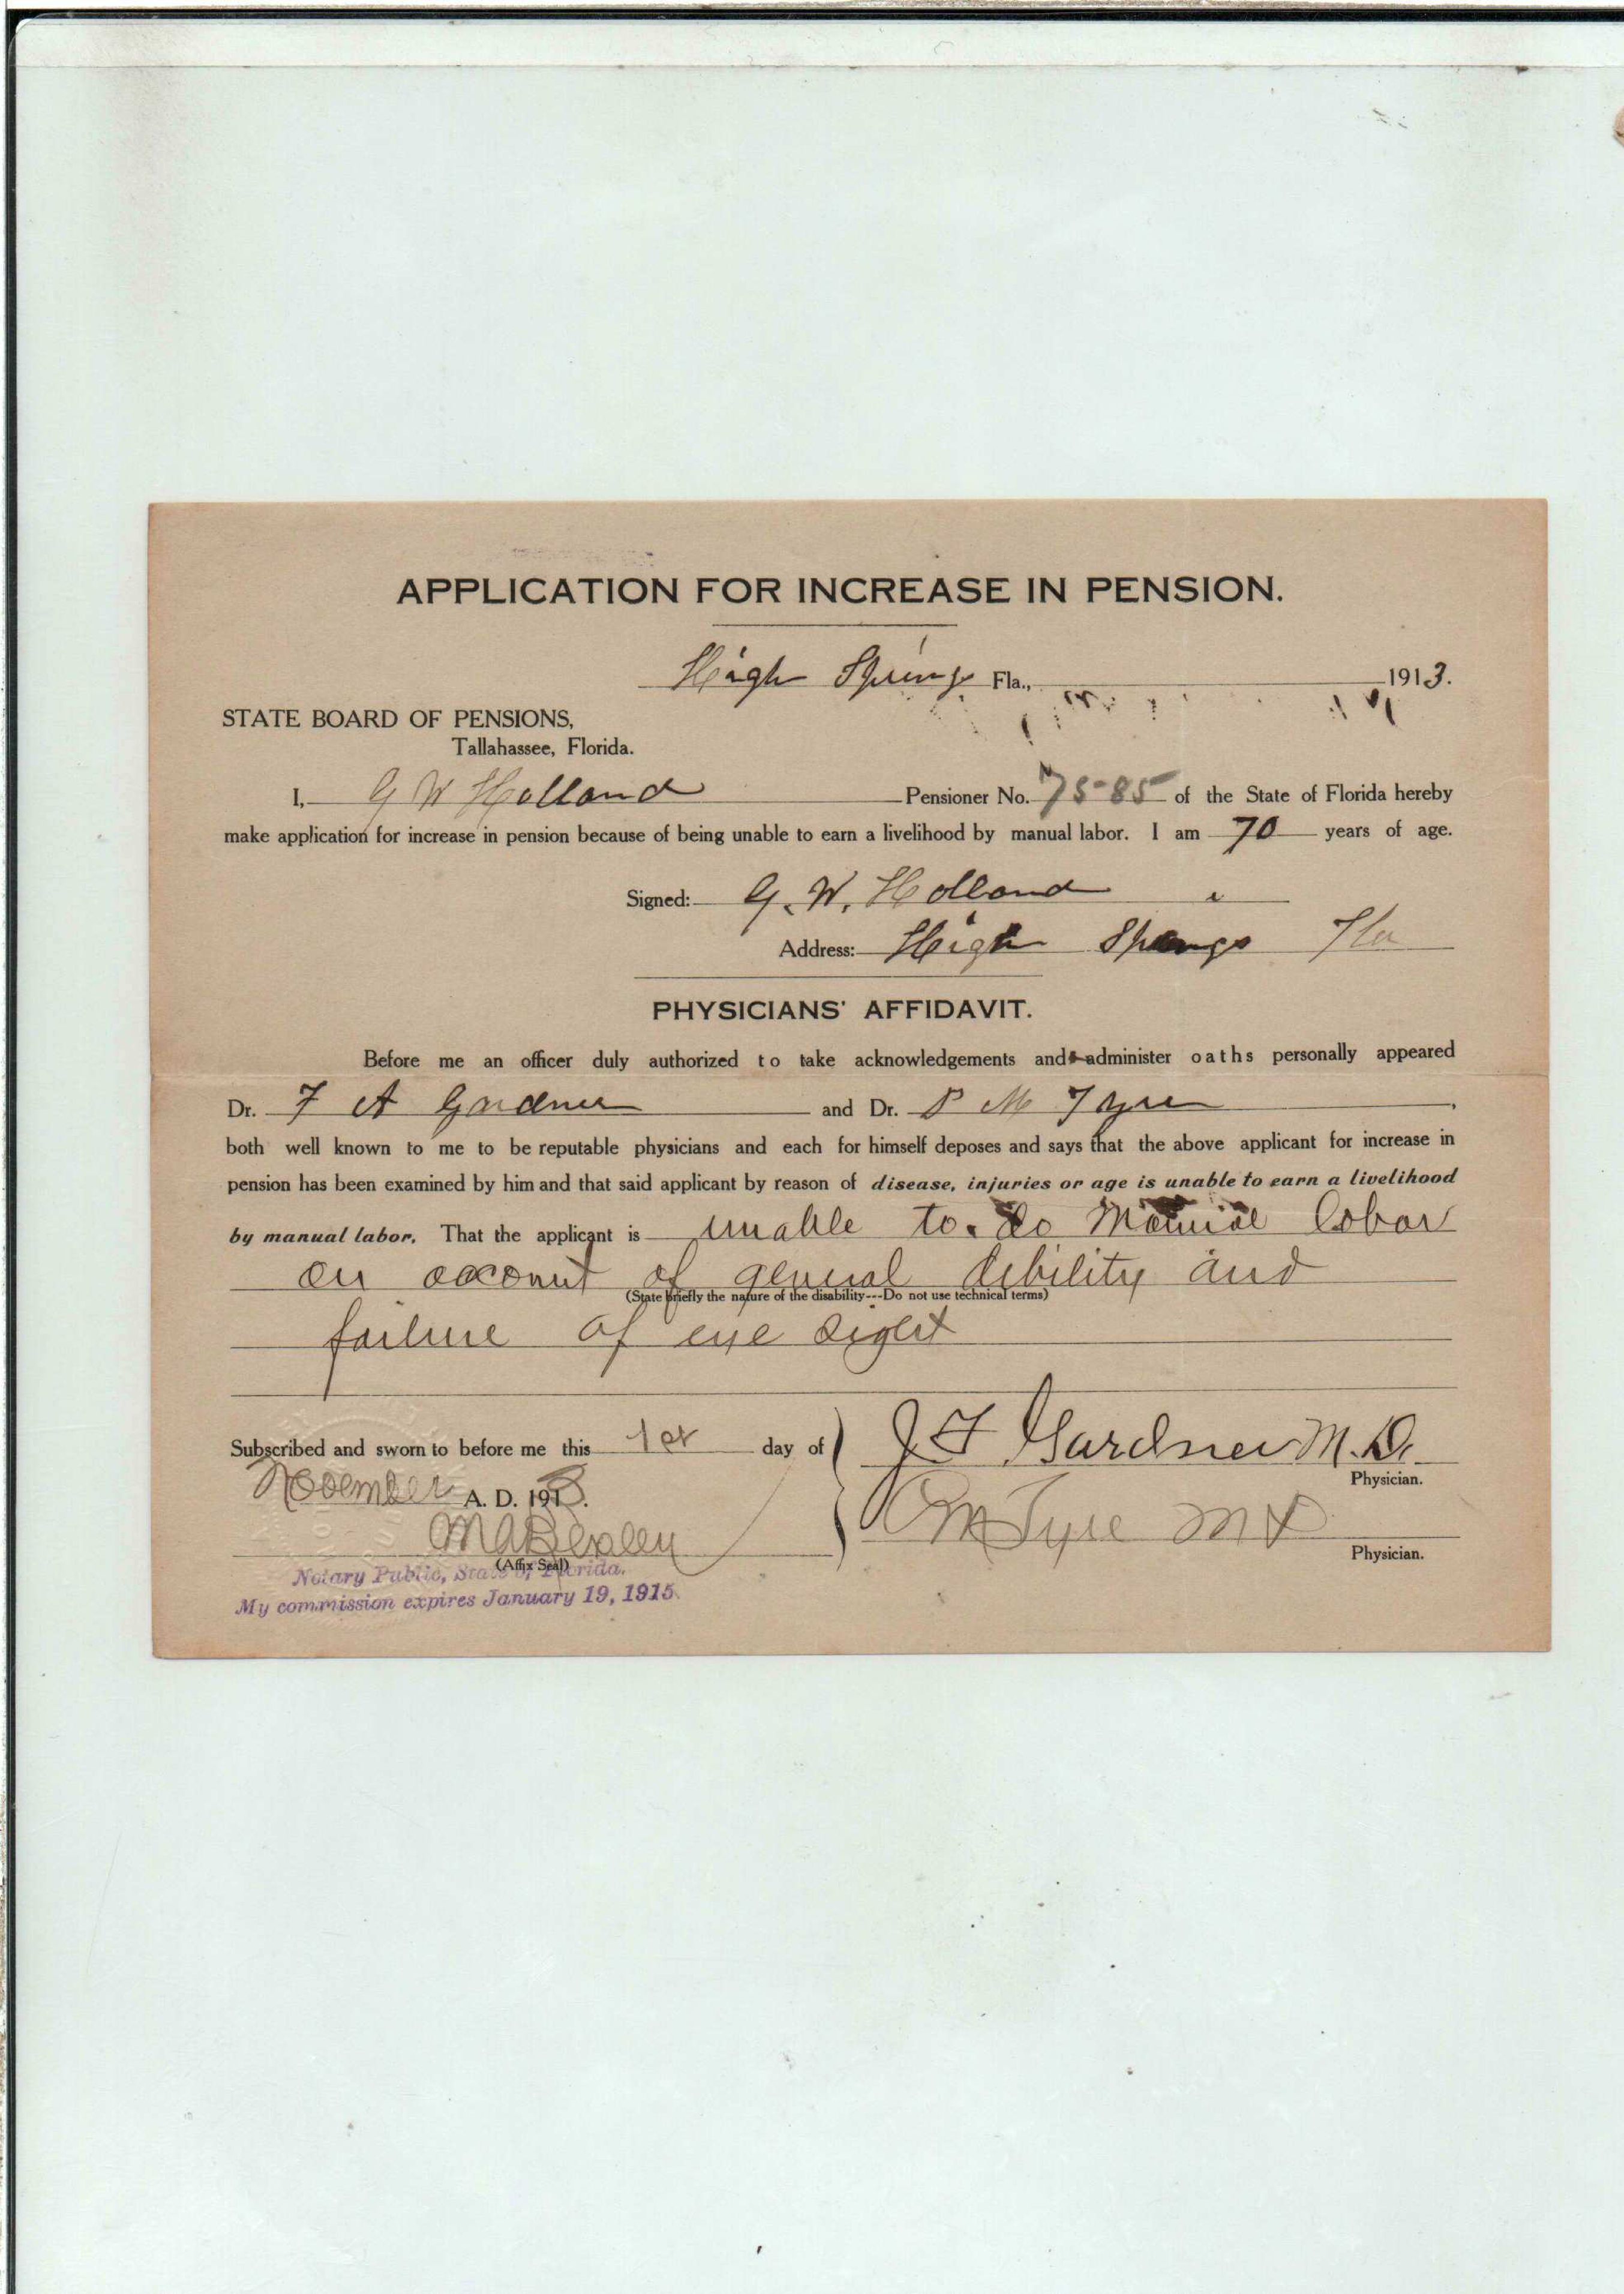 APPLICATION FOR INCREASE IN PENSION.
High Springs Fla., 1913.
STATE BOARD OF PENSIONS,
Tallahassee, Florida.
I, G W Holland Pensioner No. 7585 of the State of Florida hereby
make application for increase in pension because of being unable to earn a livelihood by manual labor. I am 70 years of age.
Signed: G. W. Holland
Address: High Springs Fla
PHYSICIANS' AFFIDAVIT.
Before me an officer duly authorized to take acknowledgements and administer oaths personally appeared
Dr. F A Gardner and Dr. P M Tyre
both well known to me to be reputable physicians and each for himself deposes and says that the above applicant for increase in
pension has been examined by him and that said applicant by reason of disease, injuries or age is unable to earn a livelihood
by manual labor. That the applicant is unable to do manual labor
on account of general debility and
(State briefly the nature of the disability---Do not use technical terms)
failure of eye sight
Subscribed and sworn to before me this 1st day of J F Gardner M.D.
Physician.
November A. D. 1913.
M Tyre MD
Physician.
(Affix Seal)
Notary Public, State of Florida.
My commission expires January 19, 1915.